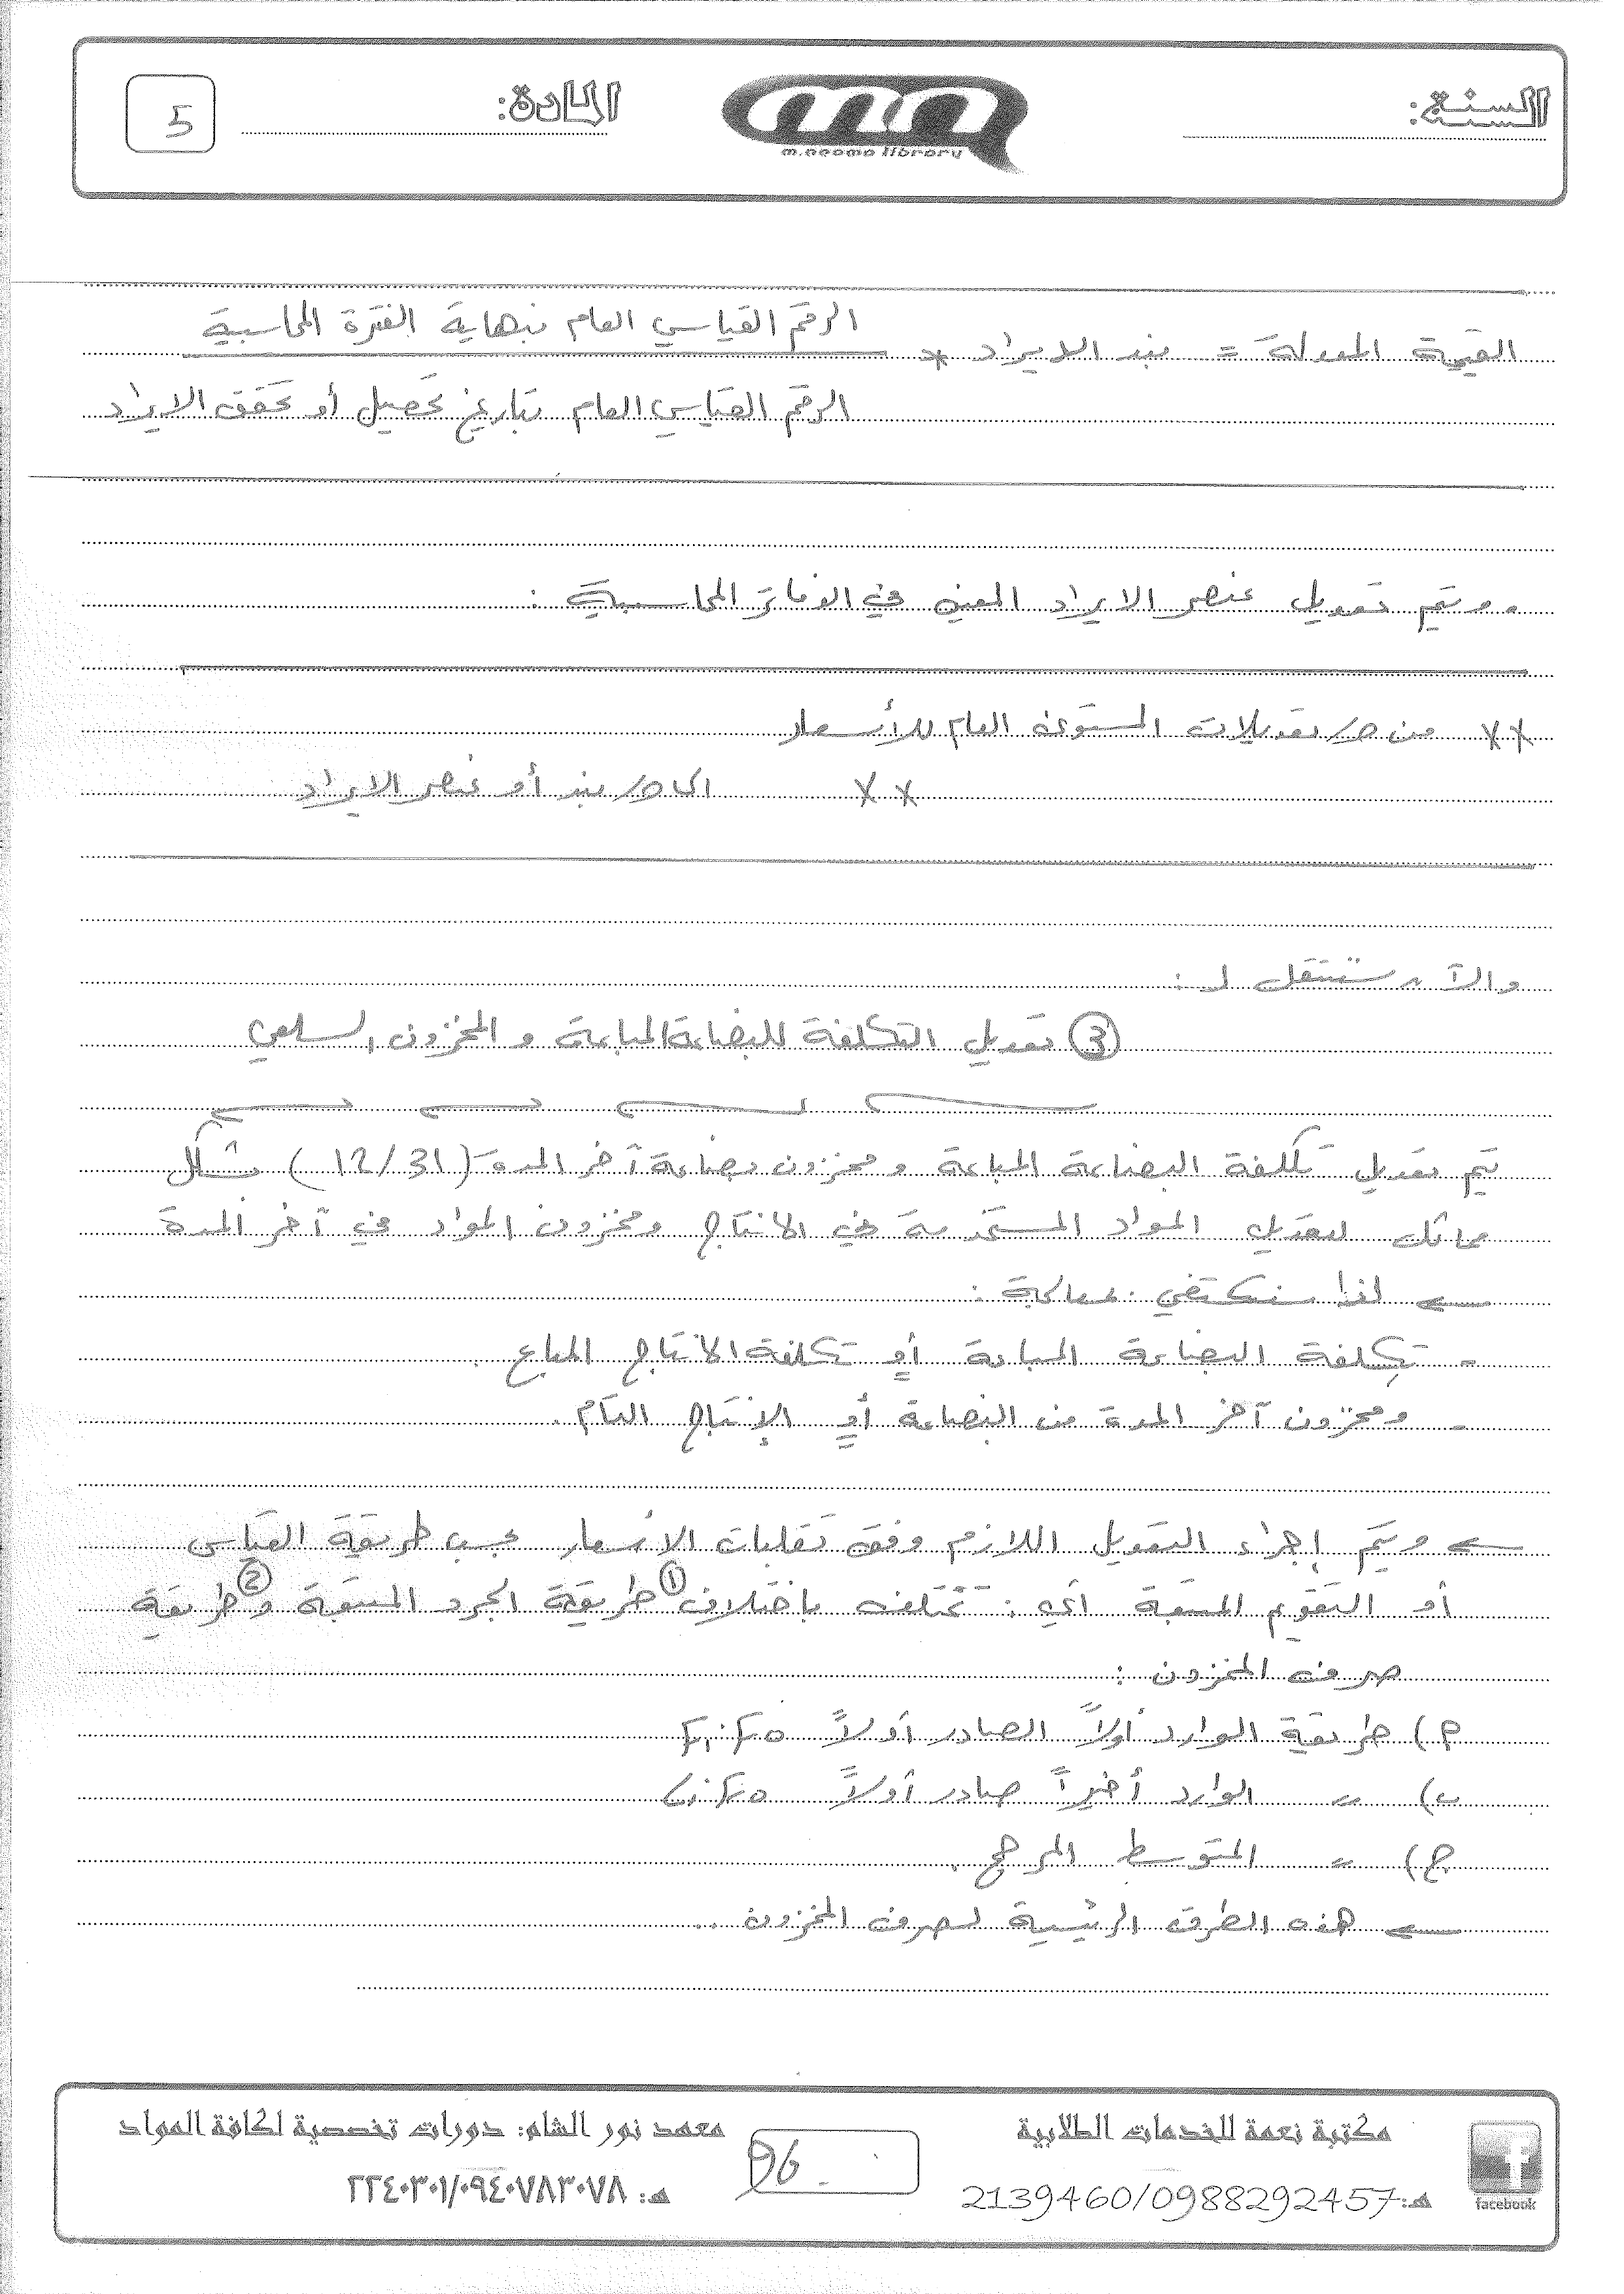 السنة:
m.neama library
المادة:
5
الرقم القياسي العام بنهاية الفترة المحاسبية
القيمة المعدلة = بند الايراد *
الرقم القياسي العام بتاريخ تحصيل أو تحقق الايراد
. ويتم تعديل عنصر الايراد المعني في الدفاتر المحاسبية :
×× من ح/ تعديلات المستوى العام للأسعار
×× الى ح/ بند أو عنصر الايراد
والآن سننتقل لـ :
③ تعديل التكلفة للبضاعة المباعة و المخزون السلعي
يتم تعديل تكلفة البضاعة المباعة ومخزون بضاعة آخر المدة (12/31) بشكل
مماثل لتعديل المواد المستخدمة في الانتاج ومخزون المواد في آخر المدة
لذا سنكتفي بمعالجة :
- تكلفة البضاعة المباعة أو تكلفة الانتاج المباع .
- ومخزون آخر المدة من البضاعة أو الإنتاج التام .
ويتم إجراء التعديل اللازم وفق تقلبات الأسعار بحسب طريقة القياس
أو التقويم المتبعة أي : تختلف باختلاف ① طريقة الجرد المتبعة و ② طريقة
صرف المخزون :
أ) طريقة الوارد أولاً الصادر أولاً
ب) 〃 الوارد أخيراً صادر أولاً
ج) 〃 المتوسط المرجح .
هذه الطرق الرئيسية لصرف المخزون ..
مكتبة نعمة للخدمات الطلابية
هـ: 2139460/0988292457
facebook
96
معهد نور الشام: دورات تخصصية لكافة المواد
هـ: ٢٢٤٠٣٠١/٠٩٤٠٧٨٣٠٧٨